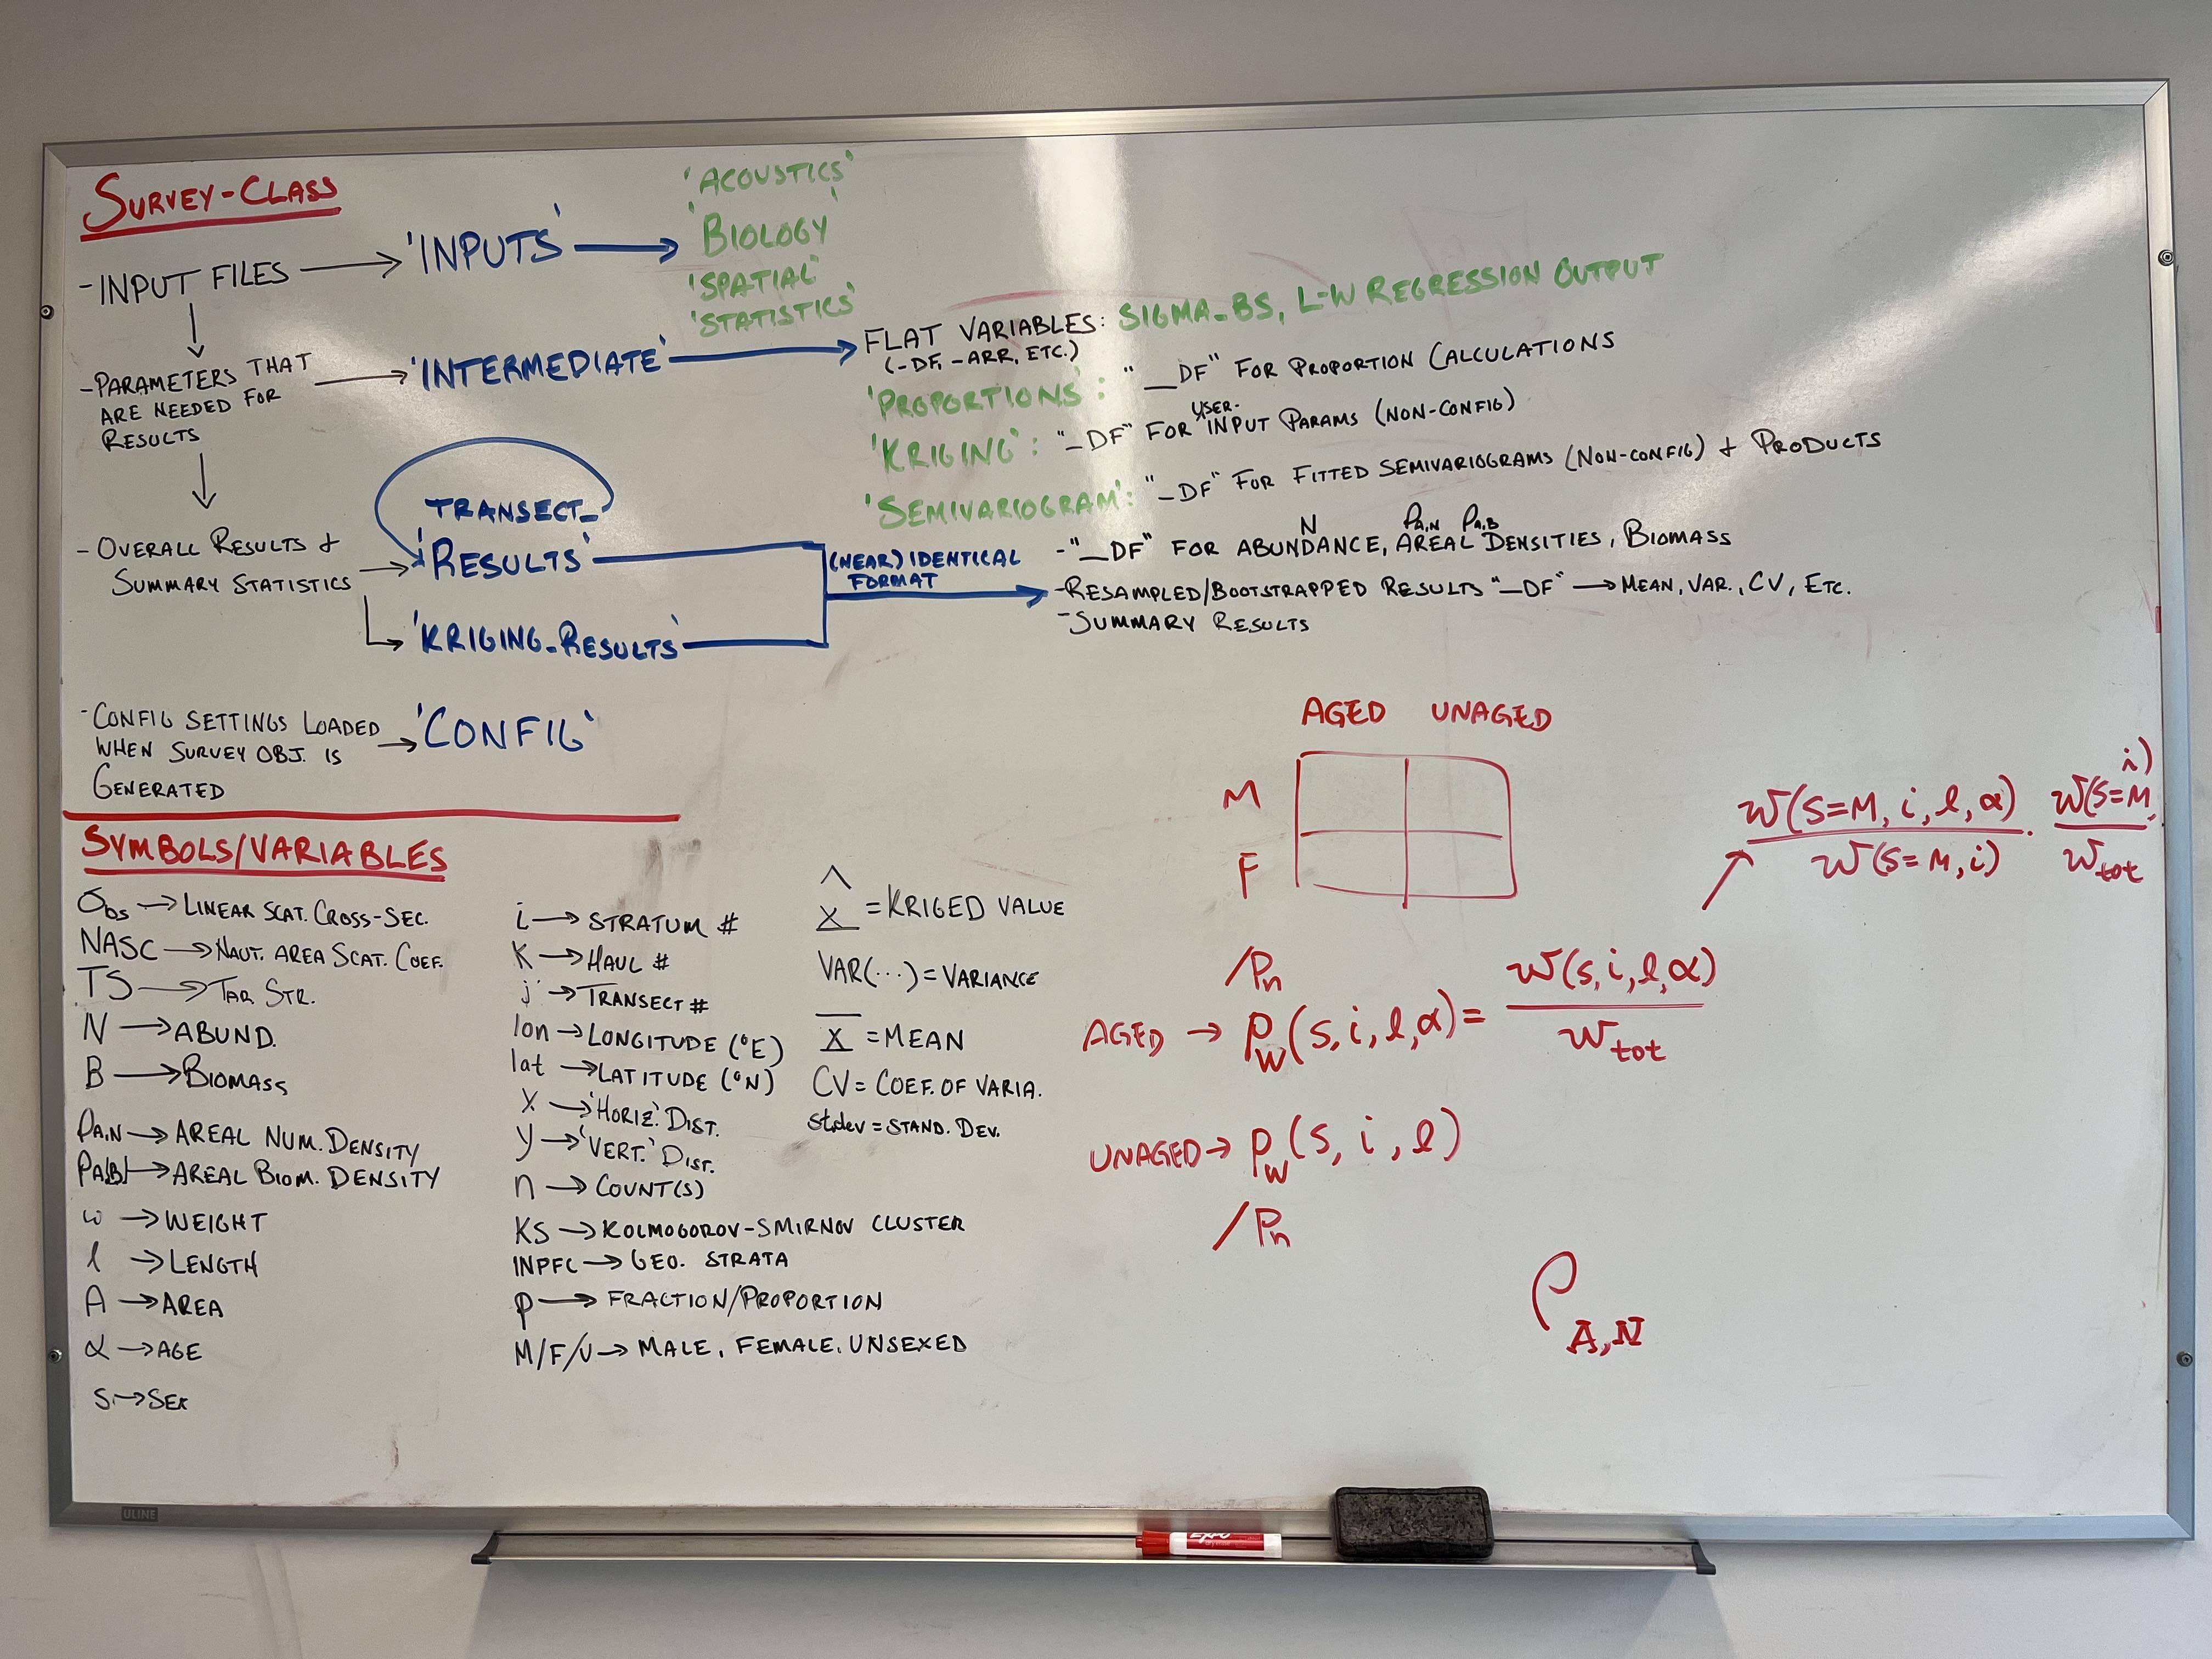 SURVEY-CLASS
-INPUT FILES → 'INPUTS' →
'ACOUSTICS'
'BIOLOGY'
'SPATIAL'
'STATISTICS'
-PARAMETERS THAT
ARE NEEDED FOR
RESULTS
→ 'INTERMEDIATE' →
FLAT VARIABLES: SIGMA_BS, L-W REGRESSION OUTPUT
(-DF, -ARR, ETC.)
'PROPORTIONS': "_DF" FOR PROPORTION CALCULATIONS
USER-
'KRIGING': "_DF" FOR INPUT PARAMS (NON-CONFIG)
'SEMIVARIOGRAM': "_DF" FOR FITTED SEMIVARIOGRAMS (NON-CONFIG) + PRODUCTS
- OVERALL RESULTS +
SUMMARY STATISTICS →
TRANSECT_
'RESULTS'
'KRIGING_RESULTS'
(NEAR) IDENTICAL
FORMAT
N ρA,N ρA,B
-"_DF" FOR ABUNDANCE, AREAL DENSITIES, BIOMASS
-RESAMPLED/BOOTSTRAPPED RESULTS "_DF" → MEAN, VAR., CV, ETC.
-SUMMARY RESULTS
-CONFIG SETTINGS LOADED
WHEN SURVEY OBJ. IS
GENERATED
→ 'CONFIG'
SYMBOLS/VARIABLES
σbs → LINEAR SCAT. CROSS-SEC.
NASC → NAUT. AREA SCAT. COEF.
TS → TAR STR.
N → ABUND.
B → BIOMASS
ρA,N → AREAL NUM. DENSITY
ρA,B → AREAL BIOM. DENSITY
ω → WEIGHT
l → LENGTH
A → AREA
α → AGE
S → SEX
i → STRATUM #
K → HAUL #
j → TRANSECT #
lon → LONGITUDE (°E)
lat → LATITUDE (°N)
X → 'HORIZ.' DIST.
y → 'VERT.' DIST.
n → COUNT(S)
KS → KOLMOGOROV-SMIRNOV CLUSTER
INPFC → GEO. STRATA
p → FRACTION/PROPORTION
M/F/U → MALE, FEMALE, UNSEXED
^
X = KRIGED VALUE
VAR(...) = VARIANCE
X̅ = MEAN
CV = COEF. OF VARIA.
St.dev = STAND. DEV.
AGED UNAGED
M
F
/Pn
AGED → pw(s, i, l, α) = w(s, i, l, α) / wtot
UNAGED → pw(s, i, l)
/Pn
w(s=M, i, l, α) / w(s=M, i) · w(s=M, i) / wtot
ρA,N
ULINE
EXPO